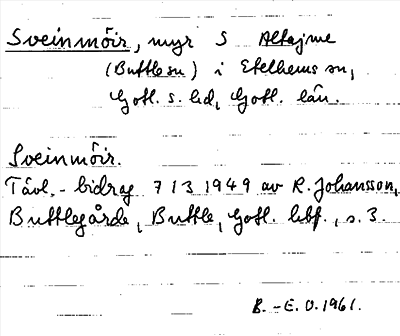 Sveinmöir, myr S Altajme
(Buttle sn) i Etelhems sn,
Gotl. s. hd, Gotl. län.
Sveinmöir.
Tävl.-bidrag 7/3 1949 av R. Johansson,
Buttlegårde, Buttle, Gotl. hbf., s. 3.
B.-E. O. 1961.